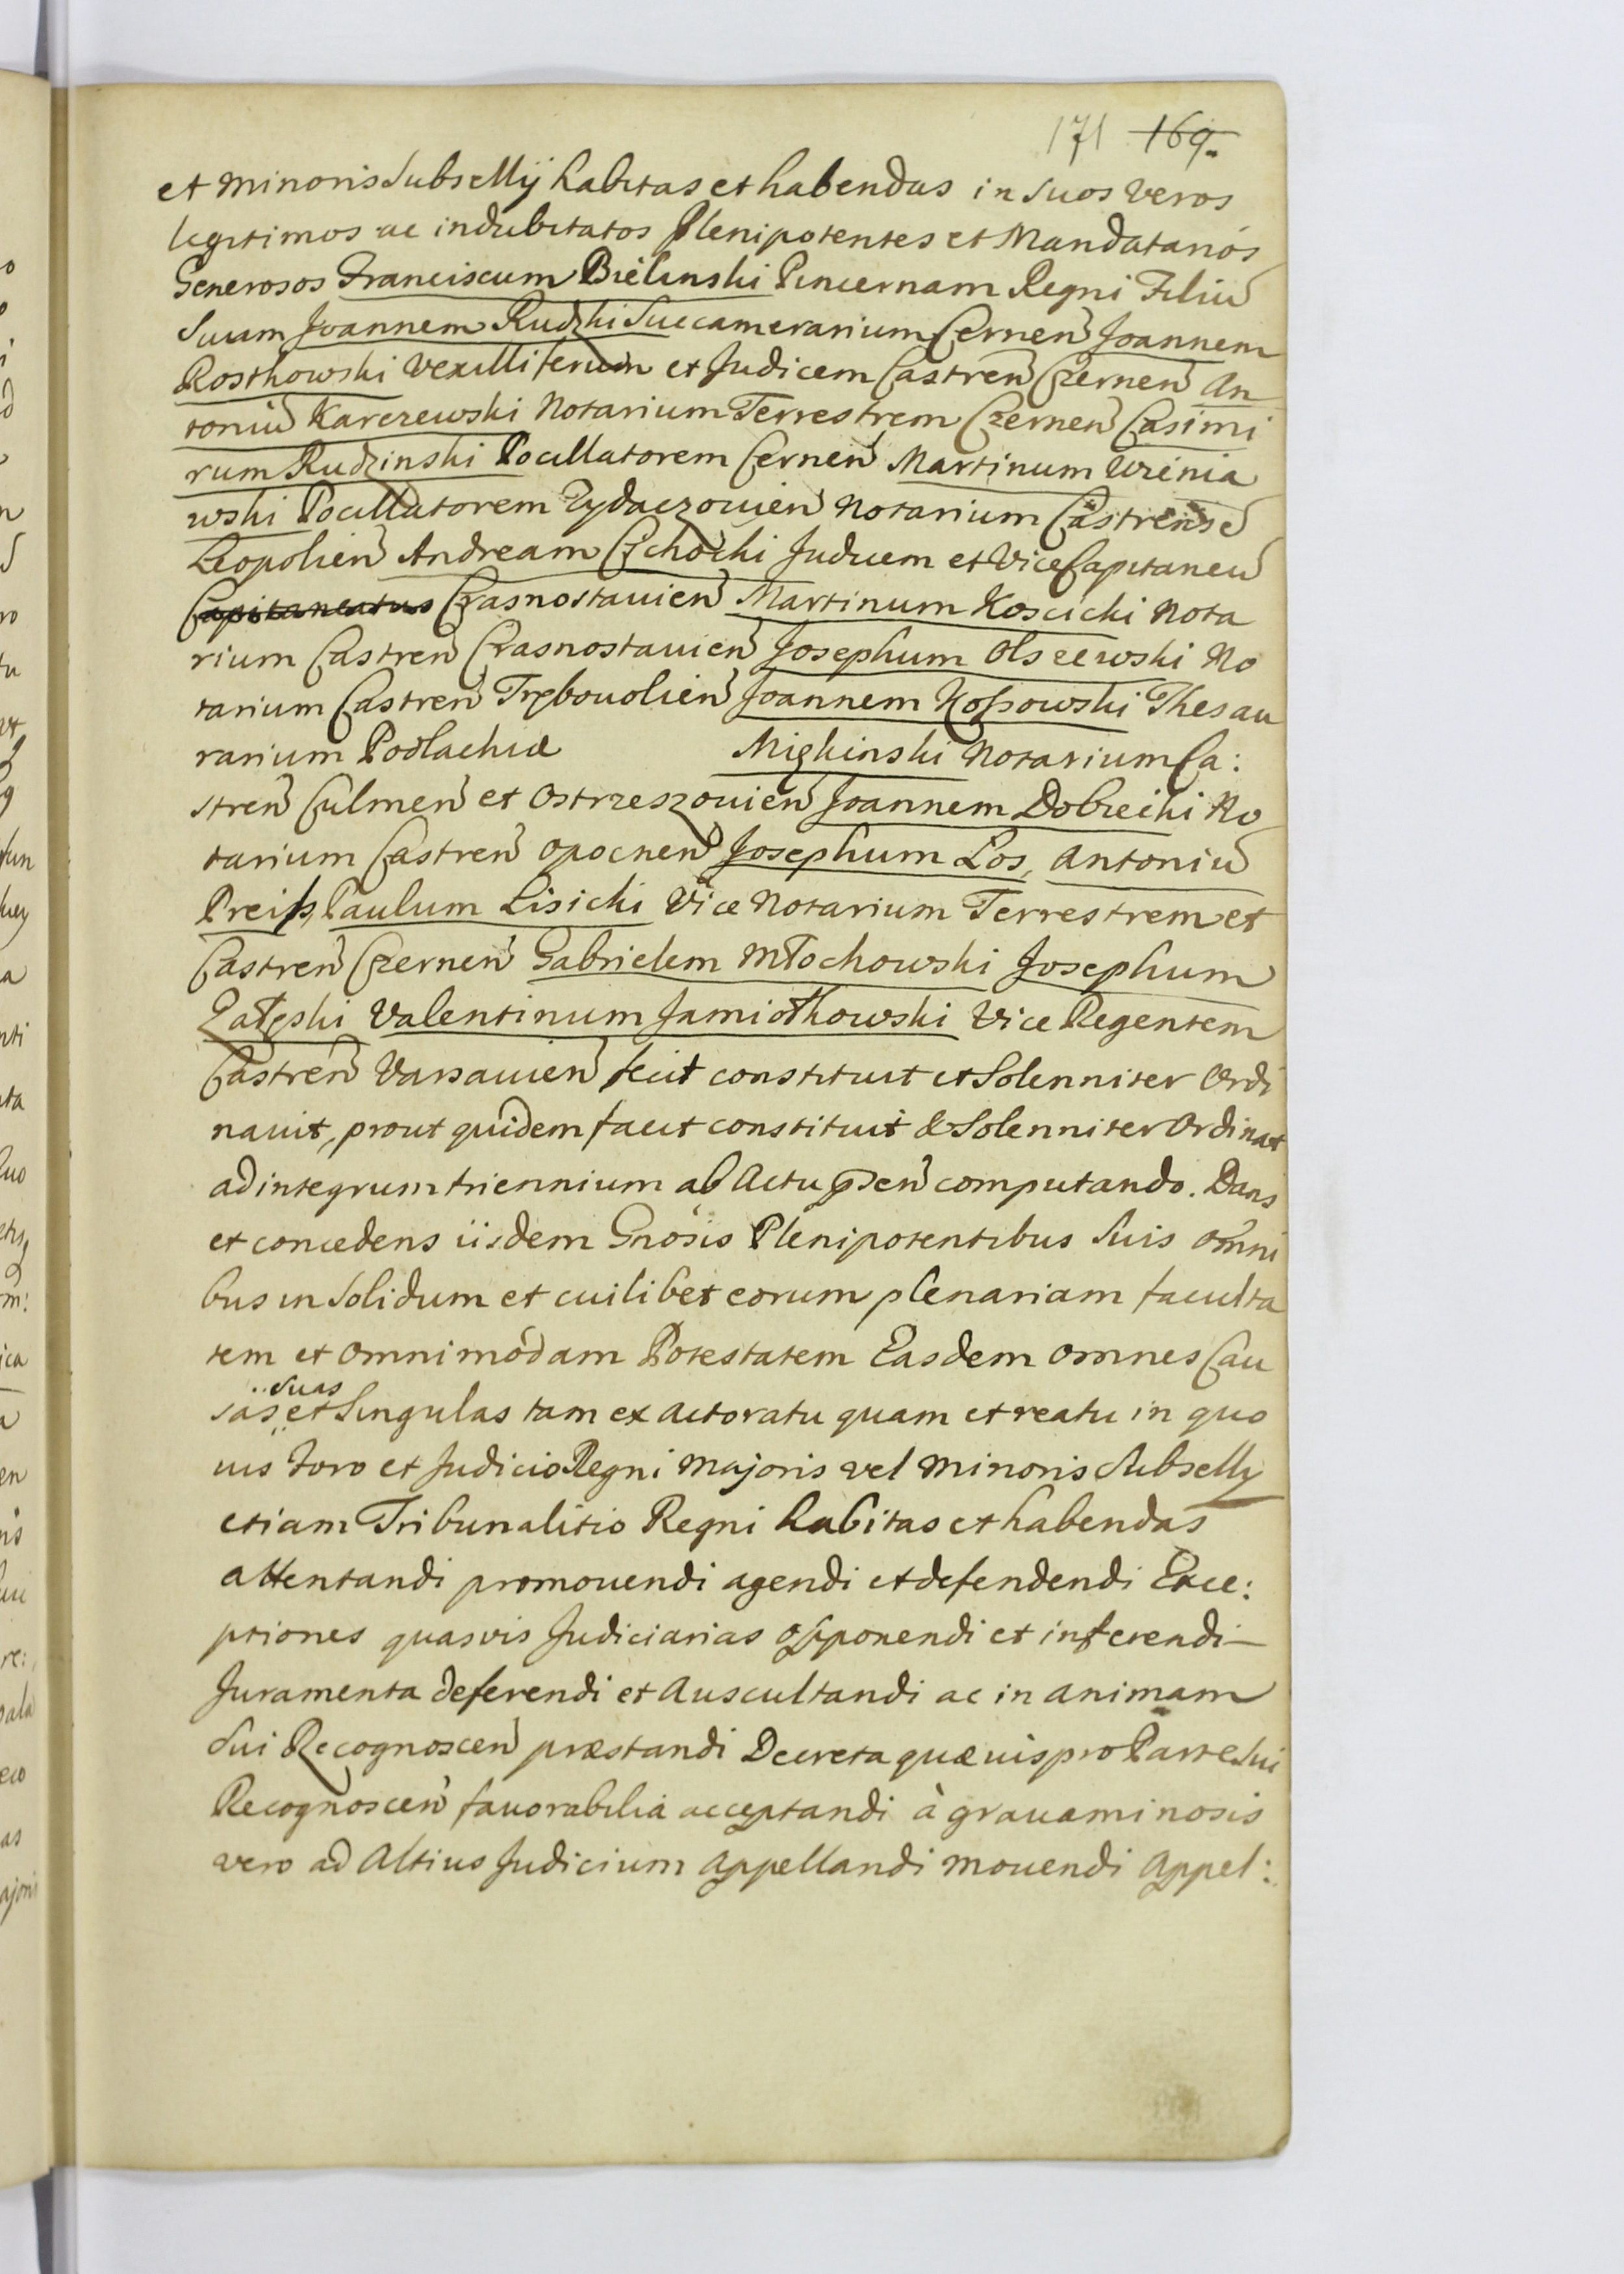 171 169.
et minoris Subsellij habitas et habendas in suos veros
legitimos ac indubitatos Plenipotentes et Mandatarios
Generosos Franciscum Bielinski Pincernam Regni Filiu
Suum Joannem Rudzki Succamerarium Cernen Joannem
Rostkowski Vexilliferum et Judicem Castren Czernen An
toniu Karczewski Notarium Terrestrem Czernen Casimi
rum Rudzinski Pocillatorem Cernen Martinum Winia
wski Pocillatorem Zydaczovien Notarium Castrense
Leopolien Andream Czchocki Judicem et ViceCapitaneu
Capitaneatus Crasnostavien Martinum Koscicki Nota
rium Castren Crasnostavien Josephum Olszewski No
tarium Castren Trębovolien Joannem Kossowski Thesau
rarium Podlachiæ Migkinski Notarium Ca:
stren Culmen et Ostrzeszovien Joannem Dobrecki No
tarium Castren Opocnen Josephum Los, Antoniu
Preiss, Paulum Lisicki Vice Notarium Terrestrem et
Castren Czernen Gabrielem Młochowski Josephum
Załęski Valentinum Jamiołkowski Vice Regentem
Castren Varsavien fecit constituit et Solenniter Ordi
navit, prout quidem facit constituit & Solenniter Ordinat
ad integrum triennium ab Actu pnsen computando. Dans
et concedens iisdem Gnosis Plenipotentibus Suis omni
bus in Solidum et cuilibet eorum plenariam faculta
tem et omnimodam Potestatem Easdem omnes Cau
suas
sas et Singulas tam ex actoratu quam et reatu in quo
vis Foro et Judicio Regni Majoris vel Minoris Subselly
etiam Tribunalitio Regni habitas et habendas
attentandi promovendi agendi et defendendi Exce:
ptiones quasvis Judiciarias opponendi et inferendi
Juramenta deferendi et Auscultandi ac in animam
Sui Recognoscen præstandi Decreta quævis pro Parte Sui
Recognoscen favorabilia acceptandi à gravaminosis
vero ad Altius Judicium Appellandi movendi Appel: